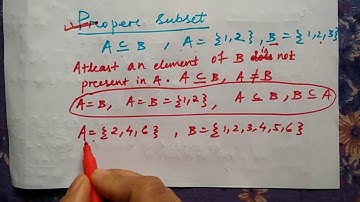 Propere Subset
A ⊆ B , A = {1,2} , B = {1,2,3}
Atleast an element of B is not
present in A. A ⊆ B, A ≠ B
A=B, A=B={1,2}, A ⊆ B, B ⊆ A
A = {2,4,6} , B = {1,2,3,4,5,6}